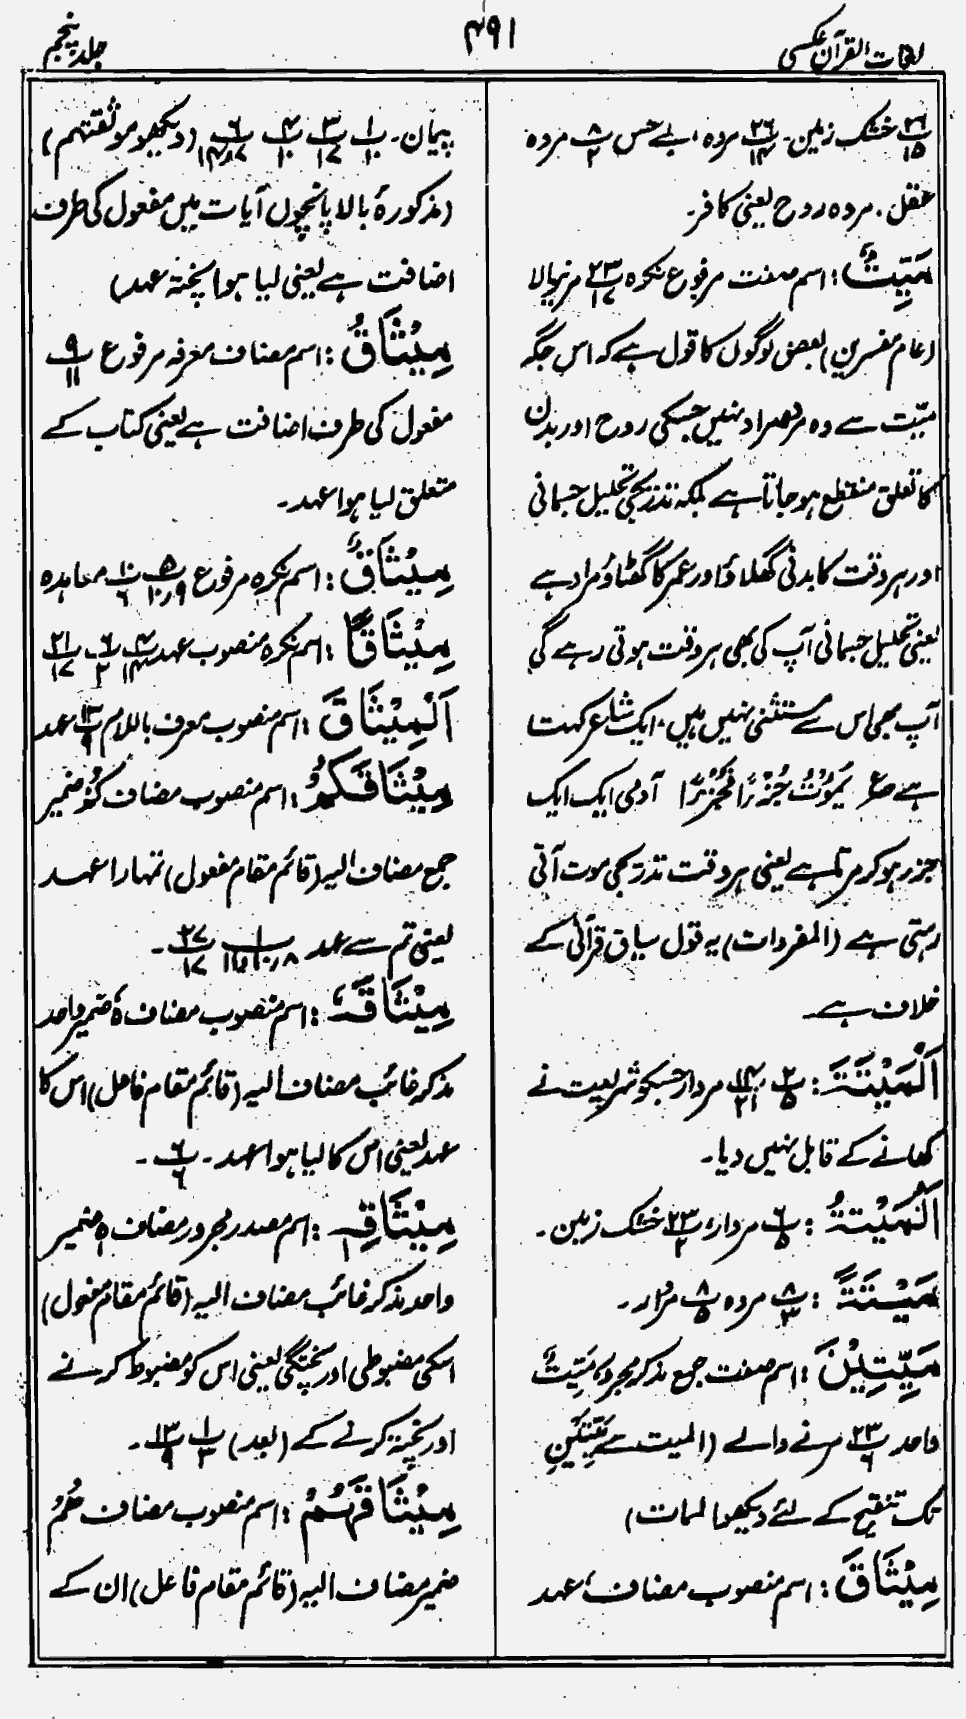 لغات القرآن عکسی
۴۹۱
جلد پنجم
۲۶/۱۵ خشک زمین۔ ۲۶/۱۴ مردہ، بے حس ۸/۲ مردہ
عقل، مردہ روح یعنی کافر۔
مَیِّتٌ: اسم صفت مرفوع نکرہ ۲۳/۱۷ مرنیوالا
(عام مفسرین) بعض لوگوں کا قول ہے کہ اس جگہ
میّت سے وہ مردہ مراد نہیں جسکی روح اور بدن
کا تعلق منقطع ہو جاتا ہے بلکہ تدریجی تحلیل جسمانی
اور ہر وقت کا بدنی گھلاؤ اور عمر کا گھٹاؤ مراد ہے
یعنی تحلیل جسمانی آپ کی بھی ہر وقت ہوتی رہے گی
آپ بھی اس سے مستثنیٰ نہیں ہیں، ایک شاعر کہتا
ہے ع یَمُوْتُ جُزْءًا فَجُزْءًا آدمی ایک ایک
جزر ہو کر مرتا ہے یعنی ہر وقت تدریجی موت آتی
رہتی ہے (المفردات) یہ قول سیاق قرآنی کے
خلاف ہے۔
اَلْمَیْتَۃَ: ۲/۵ ۱۴/۲۱ مردار جسکو شریعت نے
کھانے کے قابل نہیں دیا۔
اَلْمَیْتَۃُ: ۶/۵ مردار، ۲۳/۲ خشک زمین۔
مَیْتَۃً: ۸/۳ مردہ ۸/۵ مردار۔
مَیِّتِیْنَ: اسم صفت جمع مذکر مجرور، مَیِّتٌ
واحد ۲۳/۶ مرنے والے (المیت سے مَیِّتِیْنَ
تک تنقیح کے لئے دیکھو الممات)
مِیْثَاقَ: اسم منصوب مضاف، عہد
پیمان۔ ۱/۱۰ ۳/۱۷ ۴/۱۰ ۶/۱۴٫۷ (دیکھو موثقتہم)
(مذکورۂ بالا پانچوں آیات میں مفعول کی طرف
اضافت ہے یعنی لیا ہوا پختہ عہد)
مِیْثَاقُ: اسم مضاف معرفہ مرفوع ۹/۱۱
مفعول کی طرف اضافت ہے یعنی کتاب کے
متعلق لیا ہوا عہد۔
مِیْثَاقٌ: اسم نکرہ مرفوع ۵/۹٫۱۰ ۱۰/۶ معاہدہ
مِیْثَاقًا: اسم نکرہ منصوب عہد ۴/۱۴ ۶/۲ ۲۱/۱۷
اَلْمِیْثَاقَ: اسم منصوب معرف باللام ۱۳/۹ عہد
مِیْثَاقَکُمْ: اسم منصوب مضاف کُمْ ضمیر
جمع مضاف الیہ (قائم مقام مفعول) تمہارا عہد
یعنی تم سے عہد ۱/۸٫۱۰٫۱۱ ۲۷/۱۷۔
مِیْثَاقَہٗ: اسم منصوب مضاف ہٗ ضمیر واحد
مذکر غائب مضاف الیہ (قائم مقام فاعل) اس کا
عہد یعنی اس کا لیا ہوا عہد۔ ۶/۶۔
مِیْثَاقِہٖ: اسم مصدر مجرور مضاف ہٖ ضمیر
واحد مذکر غائب مضاف الیہ (قائم مقام مفعول)
اسکی مضبوطی اور پختگی یعنی اس کو مضبوط کرنے
اور پختہ کرنے کے (بعد) ۱/۳ ۱۳/۹۔
مِیْثَاقَہُمْ: اسم منصوب مضاف ھُمْ
ضمیر مضاف الیہ (قائم مقام فاعل) ان کے